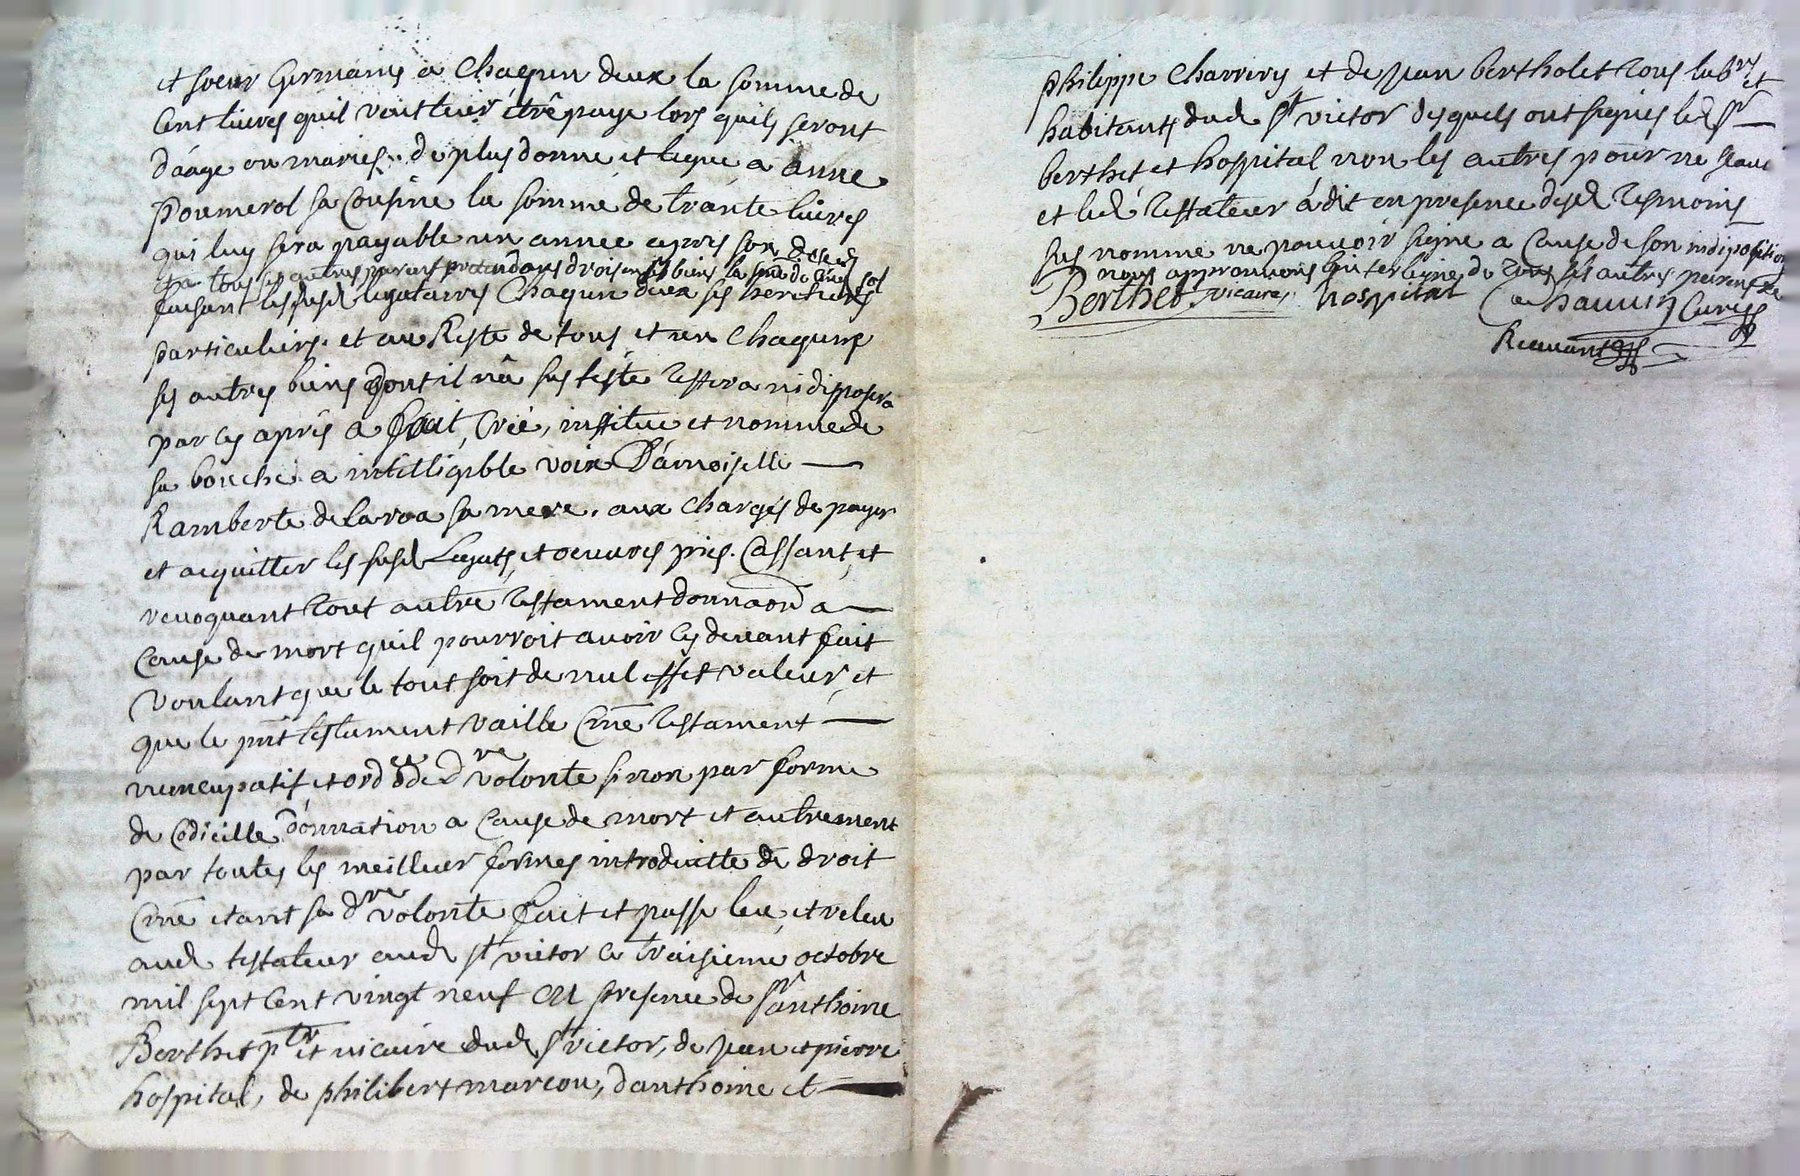 et soeur Germains a Chaqun deux la somme de
Cent livres quil veut leur être paye lors quils seront
d'aâge ou mariés. de plus donne et legue a anne
Poumerol sa Cousine la somme de trante livres
qui luy sera payable un année apres son deces
et a tous ses autres parens pretendans drois en ses biens la sme de cinq sol
faisant les susd legataires Chaqun deux ses heretiers
particuliers. et au Reste de tous et un Chaquns
ses autres biens dont il nâ sus testé testera ni disposera
par cy aprês a fait, Créé, institue et nomme de
sa bouche a intelligible voix Damoiselle
Ramberte de Laroa sa mere, aux Chargés de payer
et acquitter les susd Legats, et oeuvres pies. Cassant, et
revoquant tout autre testament donnaon a
Cause de mort quil pourroit avoir cy devant fait
Voulant que le tout soit de nul effet valeur, et
que le pnt testament vaille Cme testament
nuncupatif et ord ce de dre volonte sinon par forme
de Codicille donnation a Cause de mort et autrement
par toutes les meilleur formes introduitte de droit
Cme etant sa dre volonte fait et passe leu, et releu
aud testateur aud St victor ce traisieme octobre
mil sept Cent vingt neuf en presence de Sr anthoine
Berthet ptr et vicaire dud St victor, de Jean et pierre
hospital, de philibert marcou, danthoine et
philippe Charrery et de Jean bertholet tous labrs et
habitants dud St victor desquels ont signés led Sr
berthet et hospital non les autres pour ne scavoi
et led testateur â dit en presence desd tesmoins
sus nomme ne pouvoir signe a Cause de son indiposition
nous approuvons linterligne de tous ses autres parens &c
Berthet vicaire, hospital Chauvin Curé
Recevant